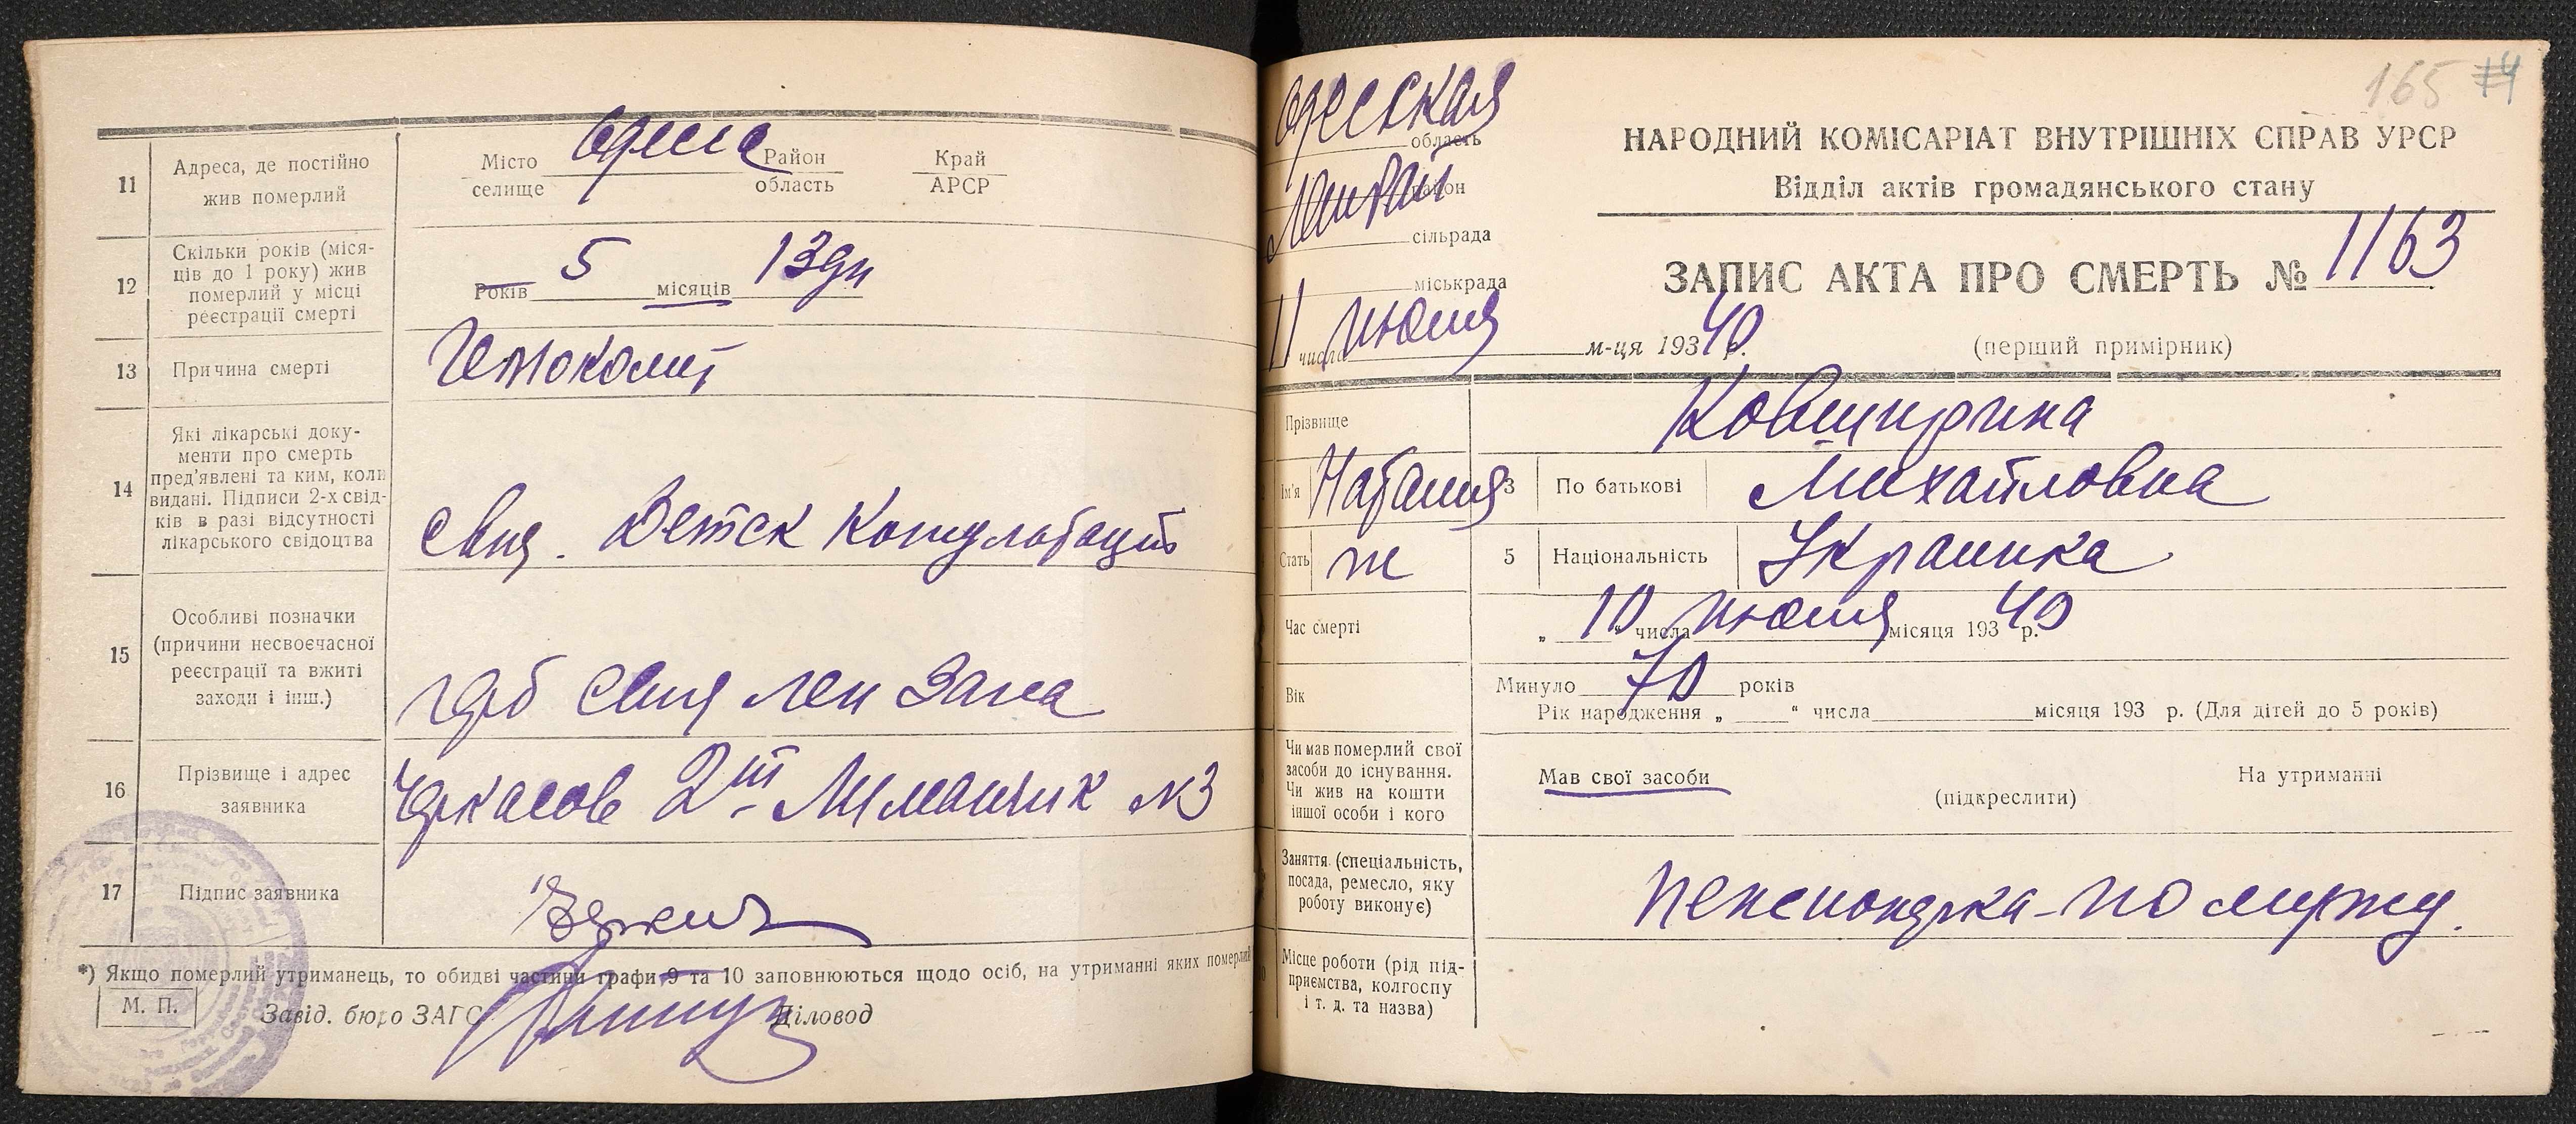 11
Адреса, де постійно
жив померлий
Місто
селище
Одесса
Район
область
Край
АРСР
12
Скільки років (міся-
ців до 1 року) жив
померлий у місці
реєстрації смерті
Років 5 місяців 13 дн
13
Причина смерті
Гемоколит
14
Які лікарські доку-
менти про смерть
пред'явлені та ким, коли
видані. Підписи 2-х свід-
ків в разі відсутності
лікарського свідоцтва
Детск Консультации
15
Особливі позначки
(причини несвоєчасної
реєстрації та вжиті
заходи і інш.)
16
Прізвище і адрес
заявника
Черкасов 2й Лиманчик №3
17
Підпис заявника
*) Якщо померлий утриманець, то обидві частини графи 9 та 10 заповнюються щодо осіб, на утриманні яких померлий
М. П.
Завід. бюро ЗАГС
Діловод
165 74
Одесская
область
Ленрай
район
сільрада
міськрада
11 числа июня м-ця 193 40 р.
НАРОДНИЙ КОМІСАРІАТ ВНУТРІШНІХ СПРАВ УРСР
Відділ актів громадянського стану
ЗАПИС АКТА ПРО СМЕРТЬ № 1163
(перший примірник)
Прізвище
Ковширина
Ім'я
Наталия
3
По батькові
Михайловна
Стать
ж
5
Національність
Украинка
Час смерті
„ 10 “ числа июня місяця 193 40 р.
Вік
Минуло 70 років
Рік народження „ “ числа місяця 193 р. (Для дітей до 5 років)
Чи мав померлий свої
засоби до існування.
Чи жив на кошти
іншої особи і кого
Мав свої засоби
(підкреслити)
На утриманні
Заняття (спеціальність,
посада, ремесло, яку
роботу виконує)
Пенсионерка - по мужу.
Місце роботи (рід під-
приємства, колгоспу
і т. д. та назва)